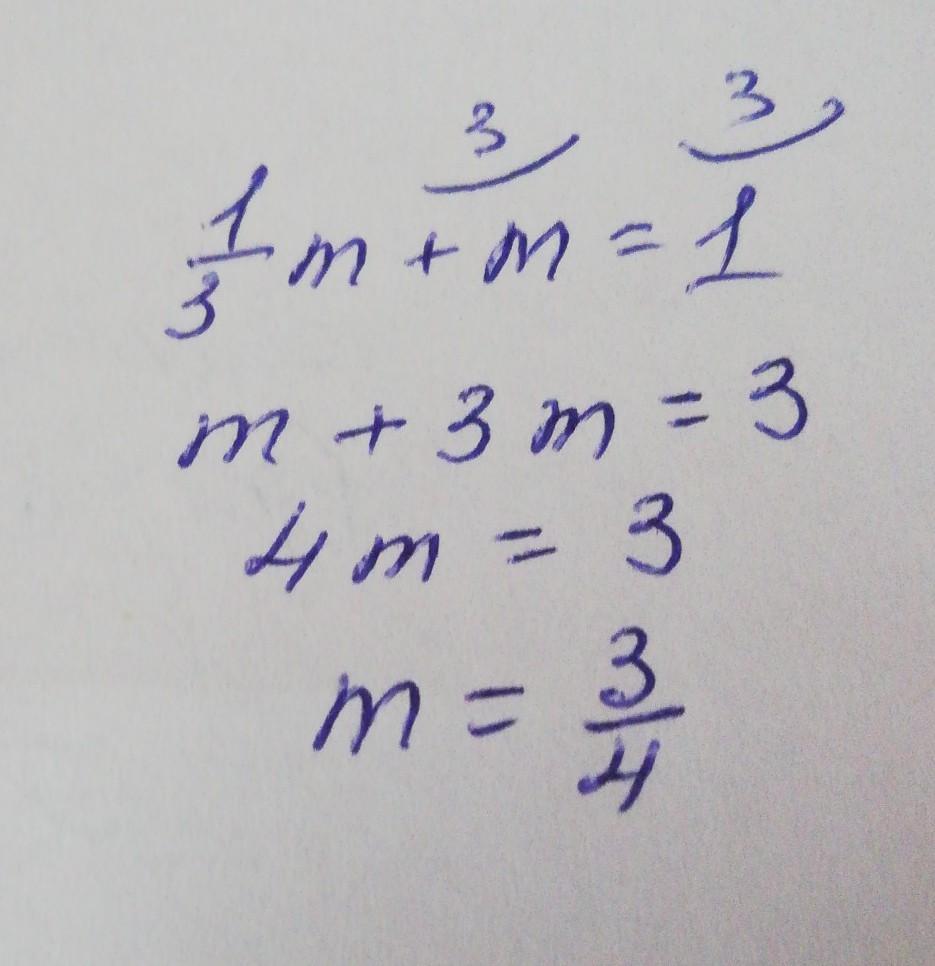 3 3
1/3 m + m = 1
m + 3m = 3
4m = 3
m = 3/4